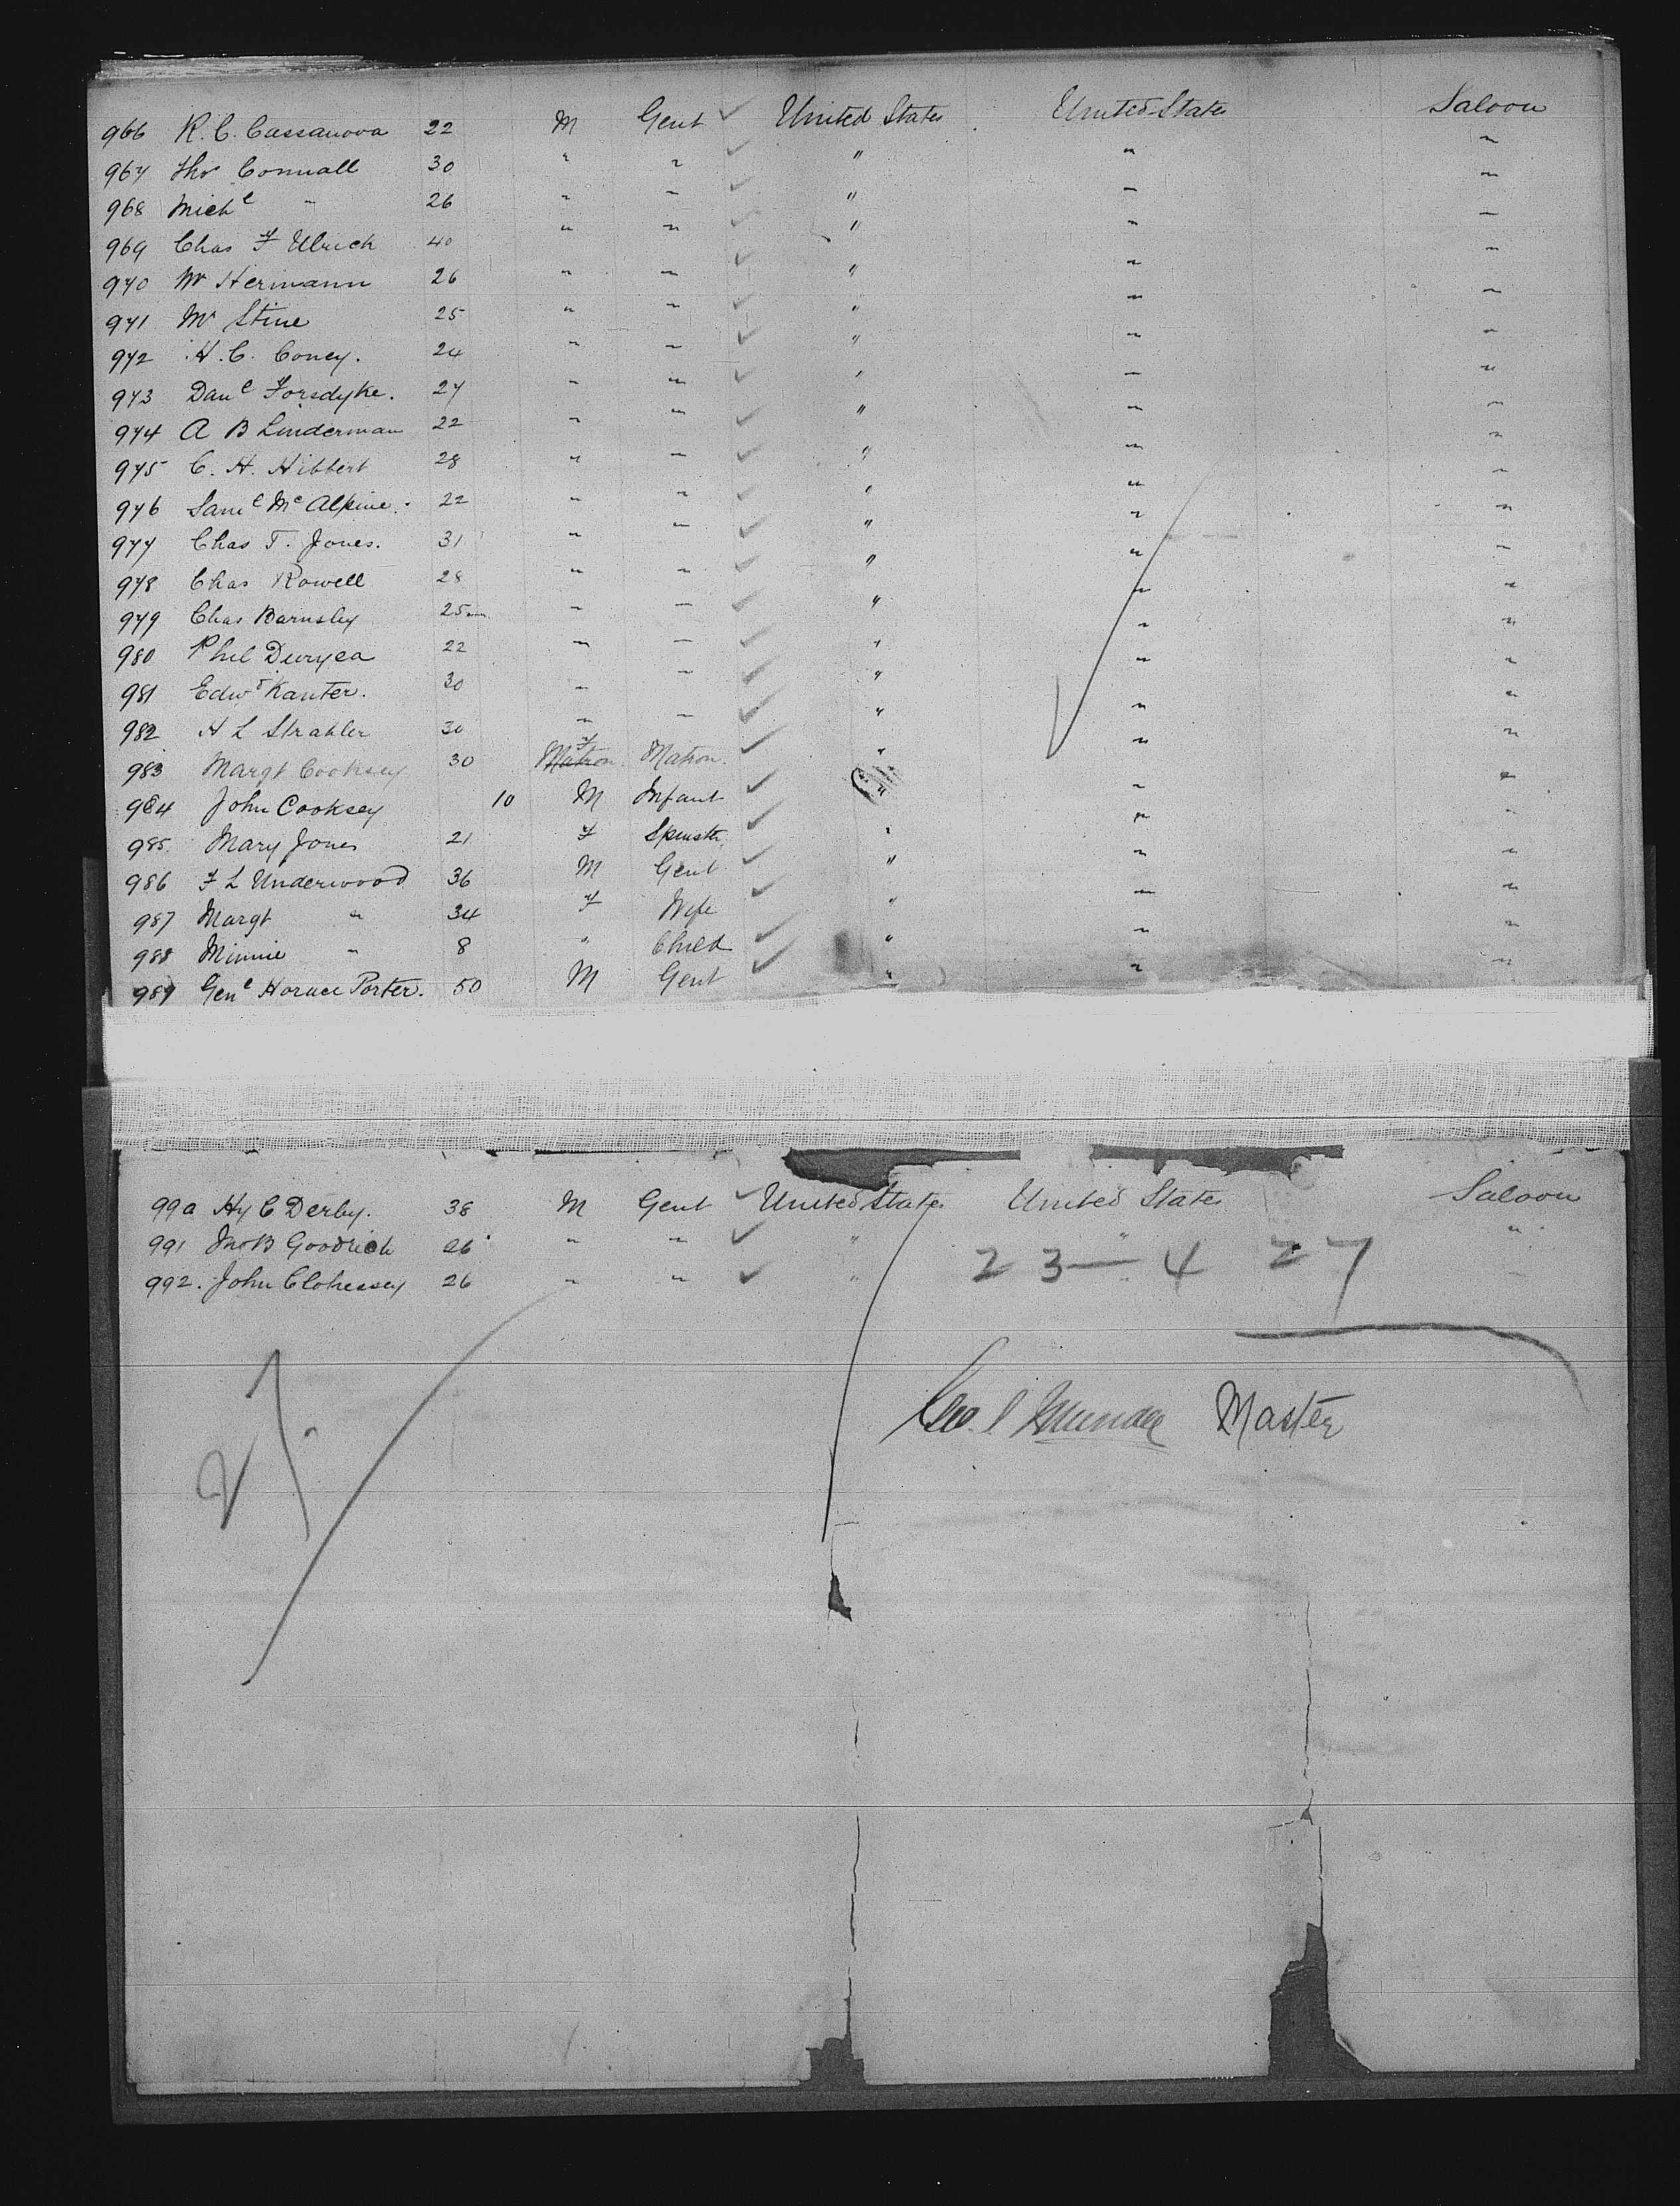 966 R. C. Cassanova 22 M Gent ✓ United States United States Saloon
967 Thos Connall 30 " " ✓ " " "
968 Michl " 26 " " ✓ " " "
969 Chas F Ulrich 40 " " ✓ " " "
970 Mr Hermann 26 " " ✓ " " "
971 Mr Stine 25 " " ✓ " " "
972 H. C. Coney. 24 " " ✓ " " "
973 Danl Forsdyke. 27 " " ✓ " " "
974 A B Linderman 22 " " ✓ " " "
975 C. H. Hibbert 28 " " ✓ " " "
976 Saml Mc Alpine. 22 " " ✓ " " "
977 Chas T. Jones. 31 " " ✓ " " "
978 Chas Rowell 28 " " ✓ " " "
979 Chas Barnsley 25 " " ✓ " " "
980 Phil Duryea 22 " " ✓ " " "
981 Edwd Kanter. 30 " " ✓ " " "
982 H L Strahler 30 " " ✓ " " "
983 Margt Cooksey 30 Matron F Matron. ✓ " " "
984 John Cooksey 10 M Infant ✓ " " "
985. Mary Jones 21 F Spinstr ✓ " " "
986 F L Underwood 36 M Gent ✓ " " "
987 Margt " 34 F Wife ✓ " " "
988 Minnie " 8 " Child ✓ " " "
989 Genl Horace Porter. 50 M Gent ✓ " " "
990 Hy C Derby. 38 M Gent ✓ United States United States Saloon
991 Jno B Goodrich 26 " " ✓ " " "
992. John Clohessey 26 " " ✓ " "
23 — 4 27
27
Master